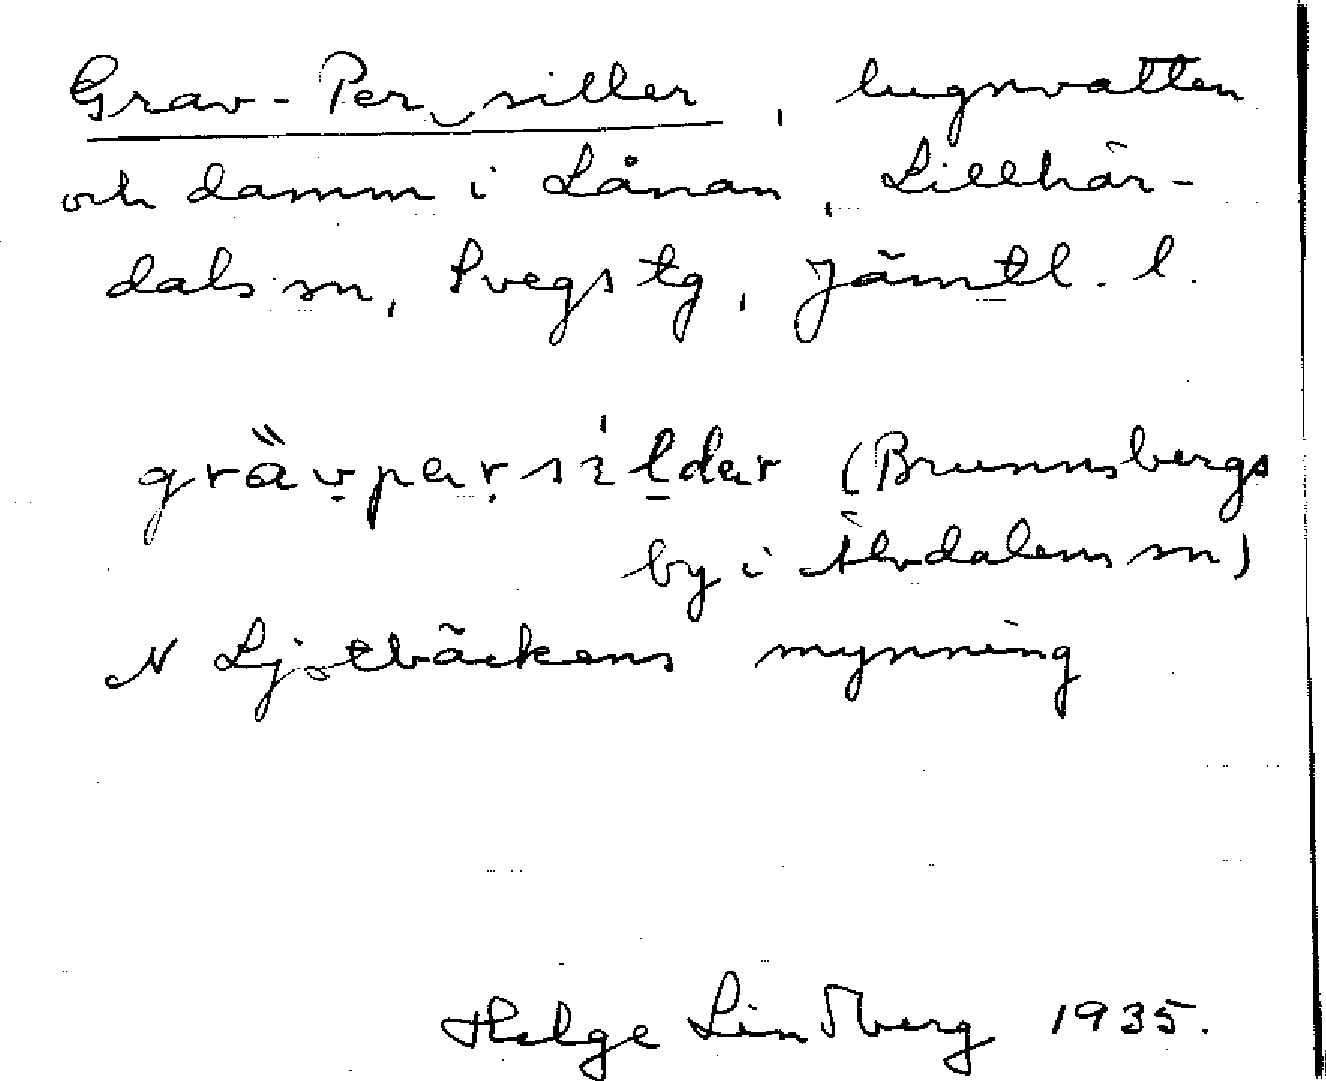 Grav-Per‿siller, lugnvatten
och damm i Lånan, Lillhär-
dals sn, Svegs tg, Jämtl. l.
grävpersilder (Brunnsbergs
by i Älvdalens sn)
N Ljotbäckens mynning
Helge Lindberg 1935.